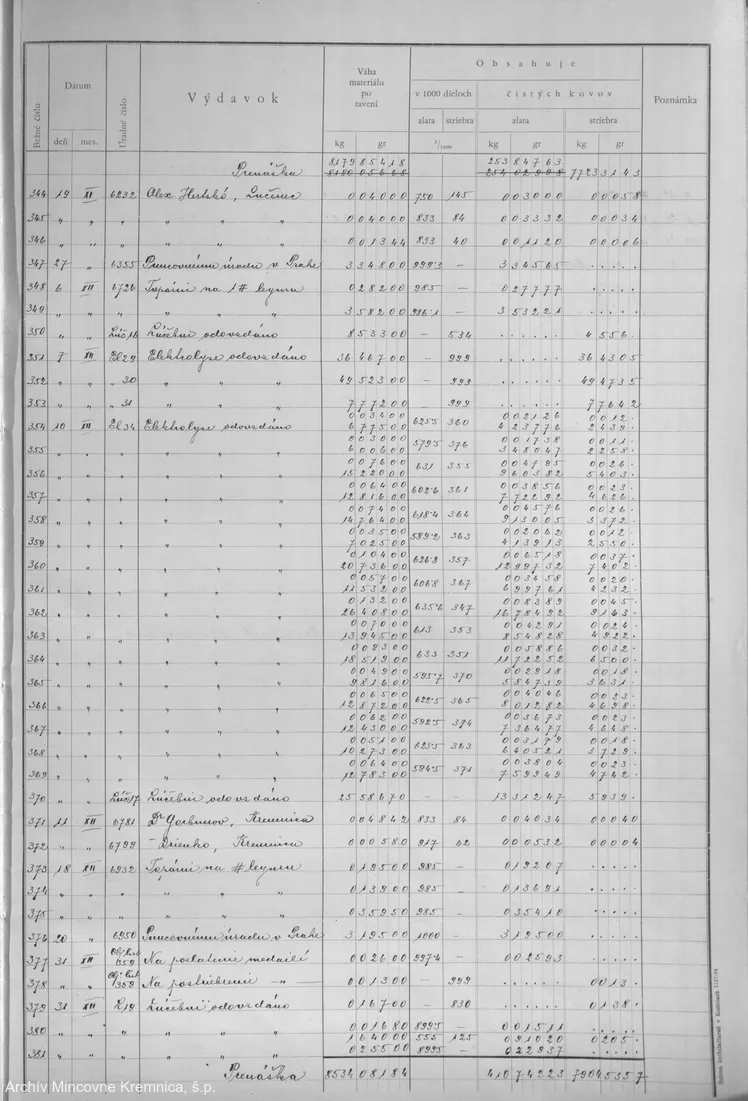 Bežné číslo Dátum deň mes. Úradné číslo Výdavok Váha materiálu po tavení kg gr Obsahuje v 1000 dieloch zlata striebra 1/1000 čistých kovov zlata kg gr striebra kg gr Poznámka
Prenáška 8179 85418 253 84763 7723 3143
344 19 XI 6232 Alex. Herlskó, Lučenec 004000 750 145 003000 00058
345 " " " " " 004000 833 84 003332 00034
346 " " " " " 001344 833 40 001120 00006
347 27 " 6355 Puncovnému úradu v Prahe 334800 999.3 — 334565 .....
348 6 XII 6726 Topárni na 1# legúru 028200 985 — 027777 .....
349 " " " " " 358200 986.1 — 353221 .....
350 " " Lúč 16 Lúčebni odovzdáno 853300 — 534 ...... 4556.
351 7 XII El 29 Elektrolyse odovzdáno 3646700 — 999 ...... 364305
352 " " " 30 " " 4952300 — 999 ...... 494735
353 " " " 31 " " 777200 999 ...... 77642
354 10 XII El 34 Elektrolyse odovzdáno 003400 677500 625.5 360 002126 423776 0012. 2439.
355 " " " " " 003000 600600 579.5 376 001738 348047 0011. 2258.
356 " " " " " 007600 1522000 631 355 004795 960382 0026. 5403.
357 " " " " " 006400 1281600 602.6 361 003856 772292 0023. 4626.
358 " " " " " 007400 1476400 618.4 364 004576 913005 0026. 5372.
359 " " " " " 003500 702500 589.2 363 002062 413913 0012. 2550.
360 " " " " " 010400 2073600 626.8 357 006518 1299732 0037. 7402.
361 " " " " " 005700 1153200 606.8 367 003458 699761 0020. 4232.
362 " " " " " 013200 2640800 635.6 347 008389 1678492 0045. 9163.
363 " " " " " 007000 1394500 613 353 004291 854828 0024. 4922.
364 " " " " " 009300 1851900 633 351 005886 1172252 0032. 6500.
365 " " " " " 004900 981600 595.7 370 002918 584739 0018. 3631.
366 " " " " " 006500 1287200 622.5 365 004046 801282 0023. 4698.
367 " " " " " 006200 1243000 592.5 374 003673 736477 0023. 4648.
368 " " " " " 005100 1027300 623.5 363 003179 640521 0018. 3729.
369 " " " " " 006400 1278300 594.5 371 003804 759949 0023. 4742.
370 " " Lúč 17 Lúčebni odovzdáno 2558670 — — 1331247 5939.
371 11 XII 6781 Dr Gorbunov, Kremnica 004842 833 84 004034 00040
372 " " 6799 — Drienko, Kremnica 000580 917 62 000532 00004
373 18 XII 6932 Topárni na # legúru 019500 985 — 019207 .....
374 " " " " " 013900 985 — 013691 .....
375 " " " " " 035950 985 — 035410 .....
376 20 " 6950 Puncovnému úradu v Prahe 319500 1000 — 319500 .....
377 31 XII Obj. list 659 Na pozlatenie medailí 002600 997.4 — 002593 .....
378 " " Obj. list 359 Na postriebrenie —"— 001300 — 999 ...... 0013.
379 31 XII L19 Lúčebni odovzdáno 016700 — 830 ...... 0138.
380 " " " " " 001680 899.5 — 001511 .....
164000 555 125 091020 0205.
381 " " " " " 025500 899.5 — 022937 .....
Prenáška 8534 08184 410 74223 7904 5357
Archív Mincovne Kremnica, š.p.